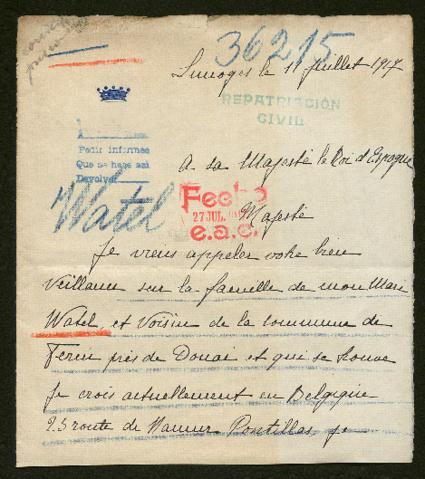 36215
Limoges le 11 Juillet 1917
REPATRIACIÓN
CIVIL
A
Pedir informes
Que se haga así
Devolver
A sa Majesté le Roi d'Espagne
Watel
Fecho
27 JUL.
e.a.e.
Majesté
Je viens appeler votre bien
Veillance sur la famille de mon Mari
Watel et Voisin de la commune de
Ferin près de Douai et qui se trouve
Je crois actuellement en Belgique
25 route de Namur Pontillas, je